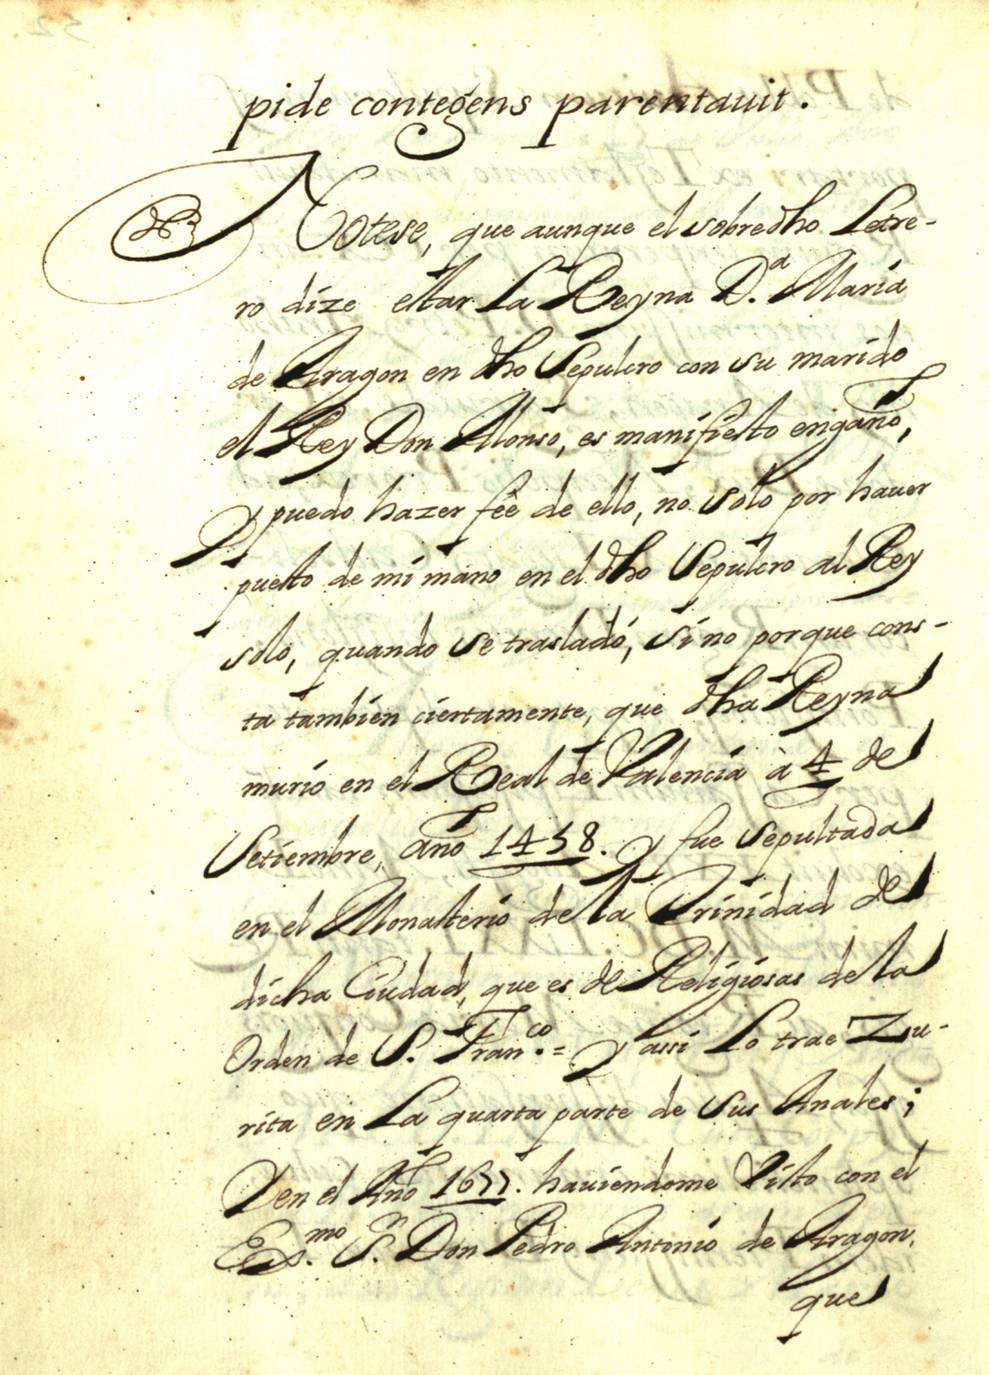 pide contegens parentauit.
Notese, que aunque el sobredho Letre-
ro dize estar La Reyna D.ª Maria
de Aragon en dho Sepulcro con su marido
el Rey Don Alonso, es manifiesto engaño,
y puedo hazer feè de ello, no solo por hauer
puesto de mi mano en el dho Sepulcro al Rey
solo, quando se trasladó, sino porque cons-
ta tambien ciertamente, que dha Reyna
murio en el Real de Valencia à 4 de
Setiembre, año 1458. y fue sepultada
en el Monasterio de la Trinidad de
dicha Ciudad, que es de Religiosas de la
Orden de S. Fran.co = y assi Lo trae Zu-
rita en La quarta parte de sus Anales;
Y en el Año 1677. hauiendome Visto con el
Ex.mo S.r Don Pedro Antonio de Aragon,
que